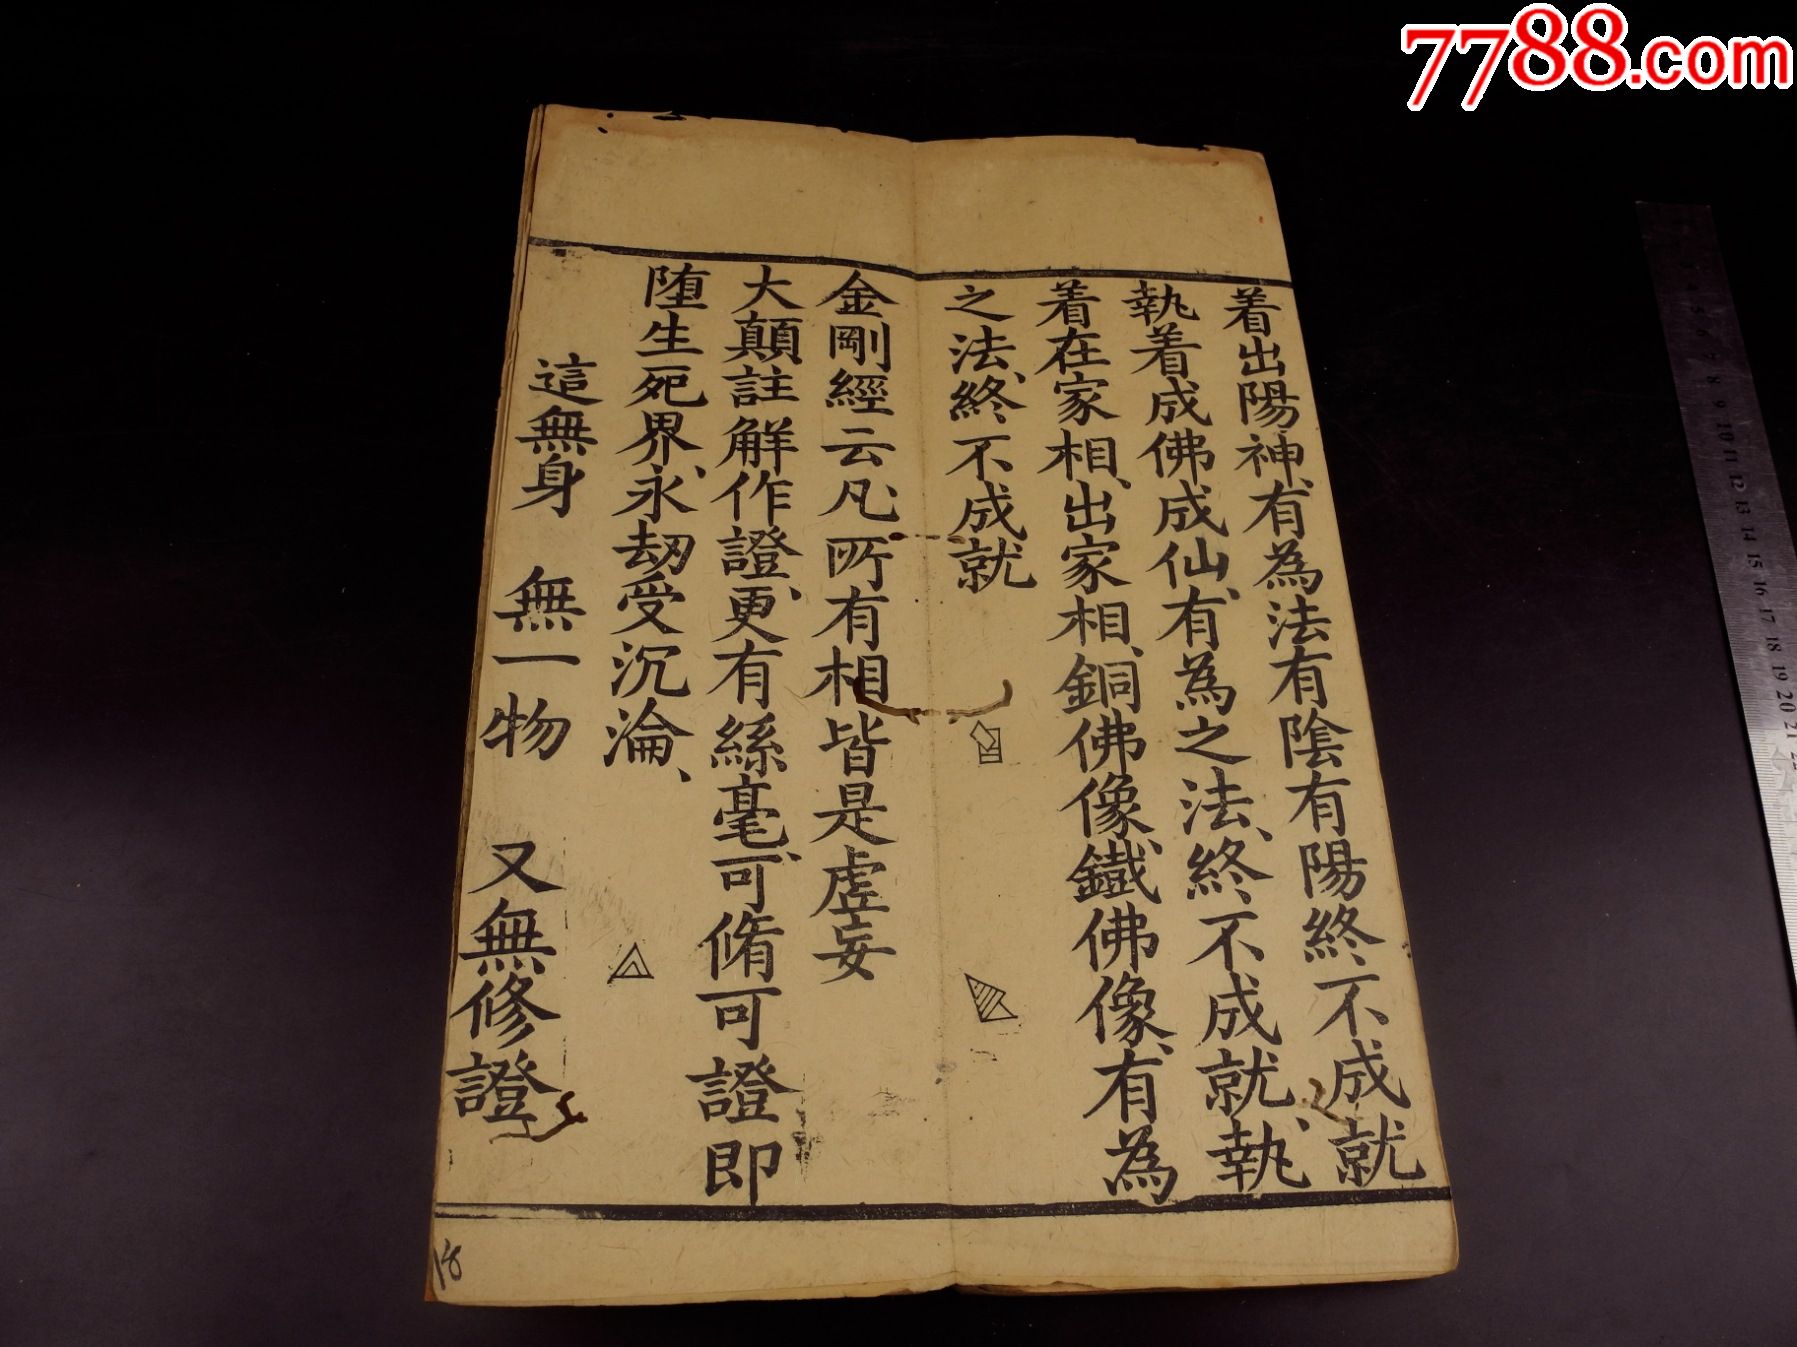 7788.com
着出陽神、有為法有陰有陽終不成就
執着成佛成仙、有為之法、終不成就、執
着在家相、出家相、銅佛像、鐵佛像、有為
之法、終不成就
金剛經云凡、所有相皆是虛妄
大顛註解作證、更有絲毫、可脩可證即
堕生死界、永劫受沉淪、
這無身 無一物 又無修證
18